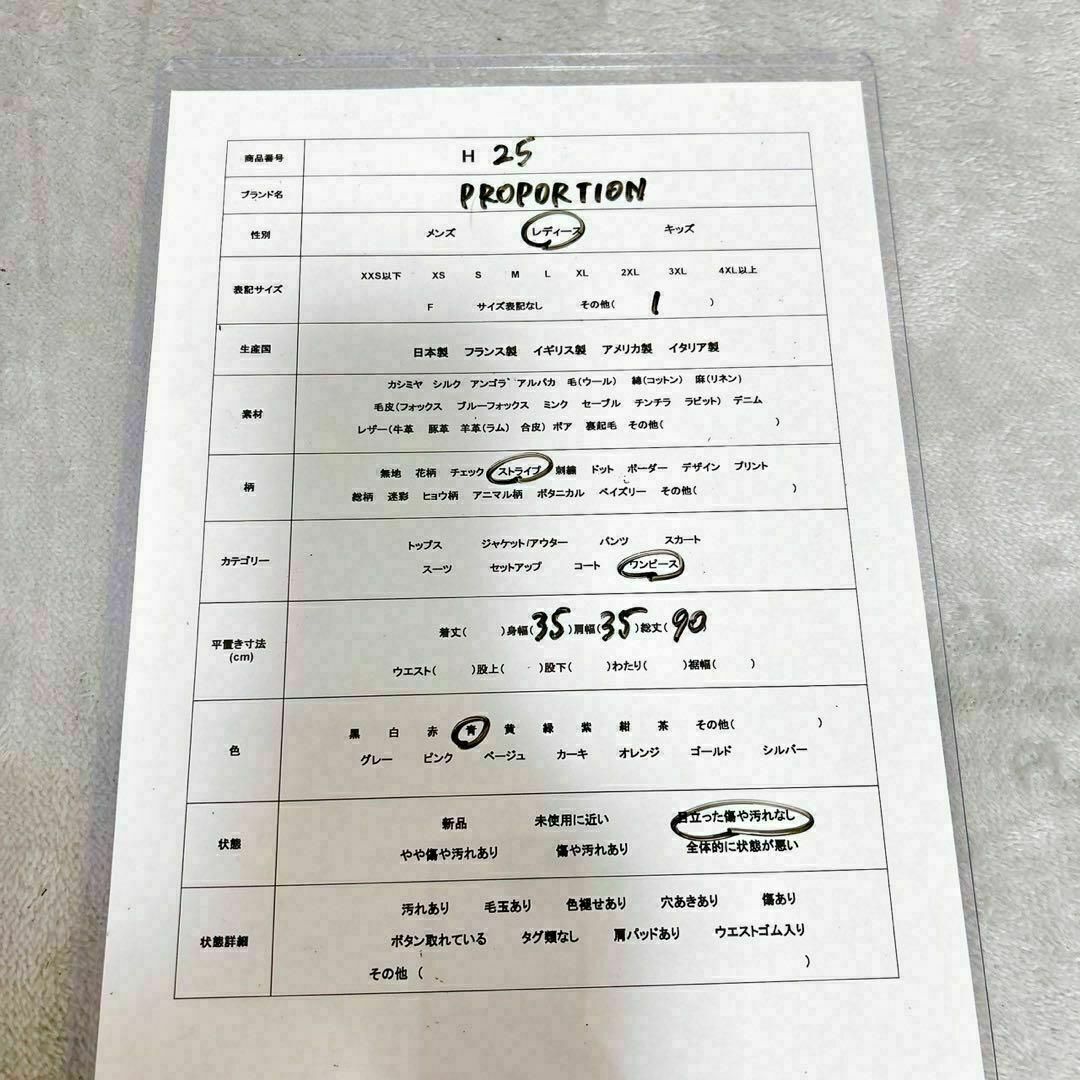 商品番号 H 25
ブランド名 PROPORTION
性別 メンズ レディース キッズ
表記サイズ XXS以下 XS S M L XL 2XL 3XL 4XL以上
F サイズ表記なし その他( 1 )
生産国 日本製 フランス製 イギリス製 アメリカ製 イタリア製
素材 カシミヤ シルク アンゴラ アルパカ 毛(ウール) 綿(コットン) 麻(リネン)
毛皮(フォックス ブルーフォックス ミンク セーブル チンチラ ラビット) デニム
レザー(牛革 豚革 羊革(ラム) 合皮) ボア 裏起毛 その他( )
柄 無地 花柄 チェック ストライプ 刺繍 ドット ボーダー デザイン プリント
総柄 迷彩 ヒョウ柄 アニマル柄 ボタニカル ペイズリー その他( )
カテゴリー トップス ジャケット/アウター パンツ スカート
スーツ セットアップ コート ワンピース
平置き寸法 (cm) 着丈( )身幅(35)肩幅(35)総丈(90)
ウエスト( )股上( )股下( )わたり( )裾幅( )
色 黒 白 赤 青 黄 緑 紫 紺 茶 その他( )
グレー ピンク ベージュ カーキ オレンジ ゴールド シルバー
状態 新品 未使用に近い 目立った傷や汚れなし
やや傷や汚れあり 傷や汚れあり 全体的に状態が悪い
状態詳細 汚れあり 毛玉あり 色褪せあり 穴あきあり 傷あり
ボタン取れている タグ類なし 肩パッドあり ウエストゴム入り
その他 ( )